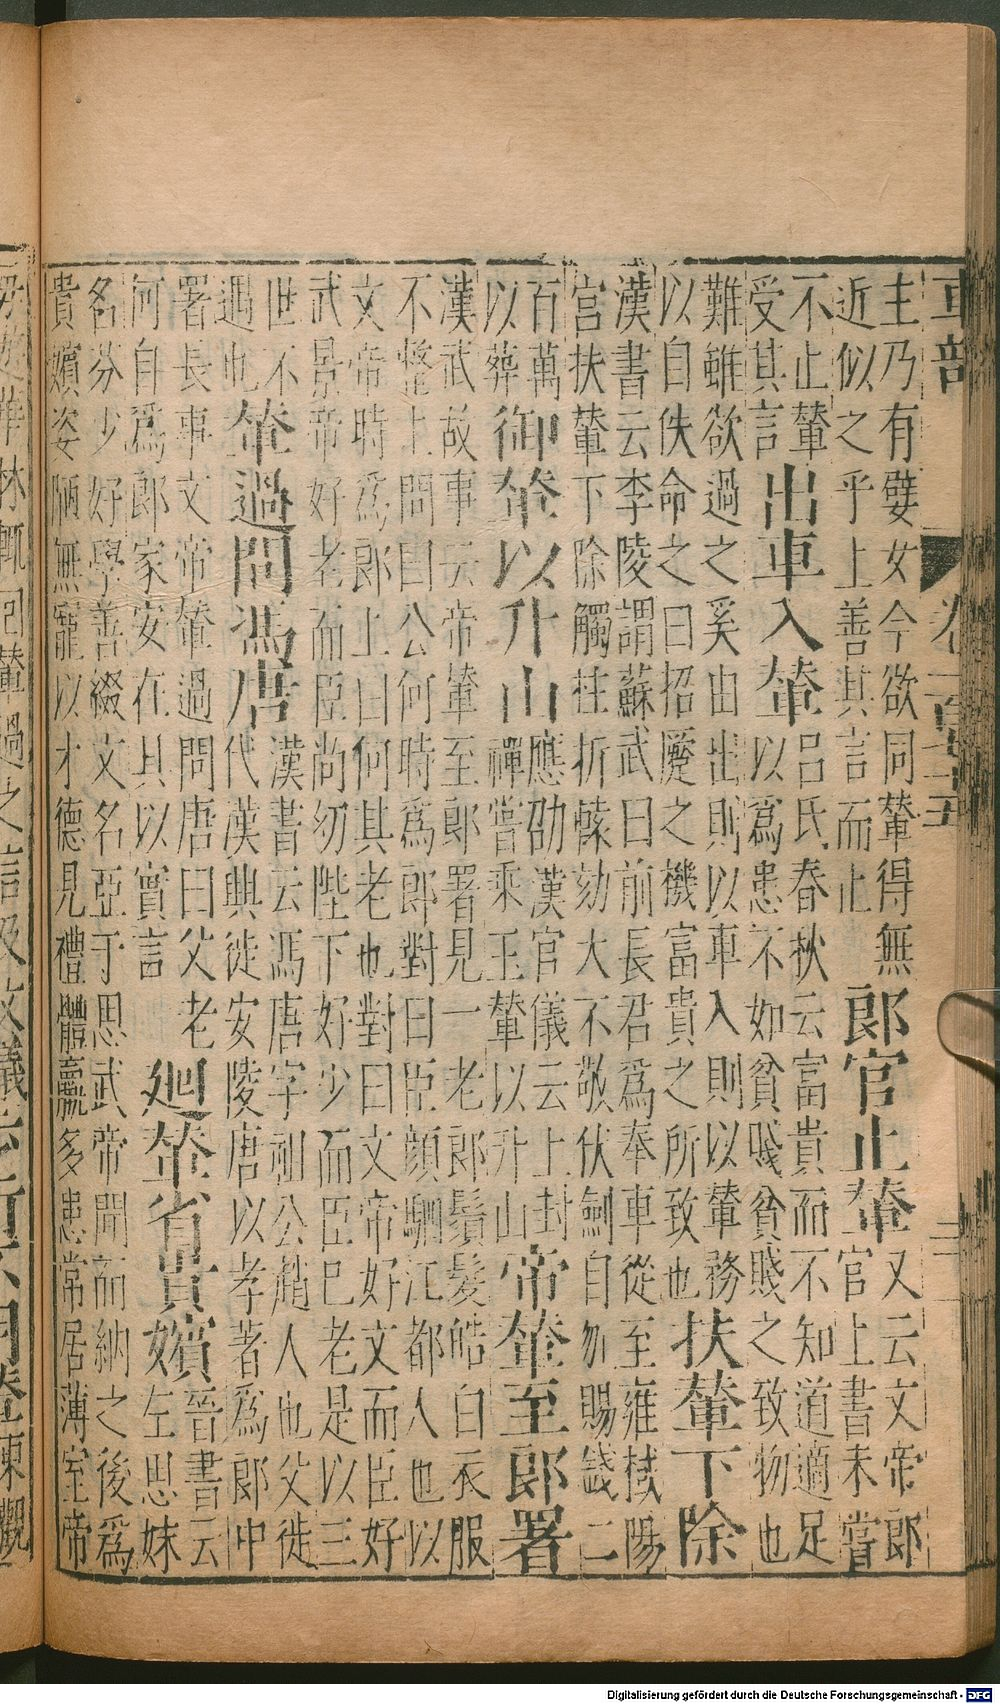 車部
主乃有嬖女今欲同輦得無
近似之乎上善其言而止
郎官止輦
又云文帝郎
官上書未嘗
不止輦
受其言
出車入輦
呂氏春秋云富貴而不知道適足
以爲患不如貧賤貧賤之致物也
難雖欲過之奚由出則以車入則以輦務
以自佚命之曰招蹷之機富貴之所致也
扶輦下除
漢書云李陵謂蘇武曰前長君爲奉車從至雍棫陽
宫扶輦下除觸柱折轅劾大不敬伏劍自刎賜錢二
百萬
以葬
御輦以升山
應劭漢官儀云上封
禪嘗乘玉輦以升山
帝輦至郎署
漢武故事云帝輦至郎署見一老郎鬚髮皓白衣服
不整上問曰公何時爲郎對曰臣顔駟江都人也以
文帝時爲郎上曰何其老也對曰文帝好文而臣好
武景帝好老而臣尚幼陛下好少而臣已老是以三
世不
遇也
輦過問馮唐
漢書云馮唐字祖公趙人也父徙
代漢興徙安陵唐以孝著爲郎中
署長事文帝輦過問唐曰父老
何自爲郎家安在具以實言
廻輦省貴嬪
晉書云
左思妹
名芬少好學善綴文名亞于思武帝聞而納之後爲
貴嬪姿陋無寵以才德見禮體羸多患常居薄室帝
Digitalisierung gefördert durch die Deutsche Forschungsgemeinschaft - DFG